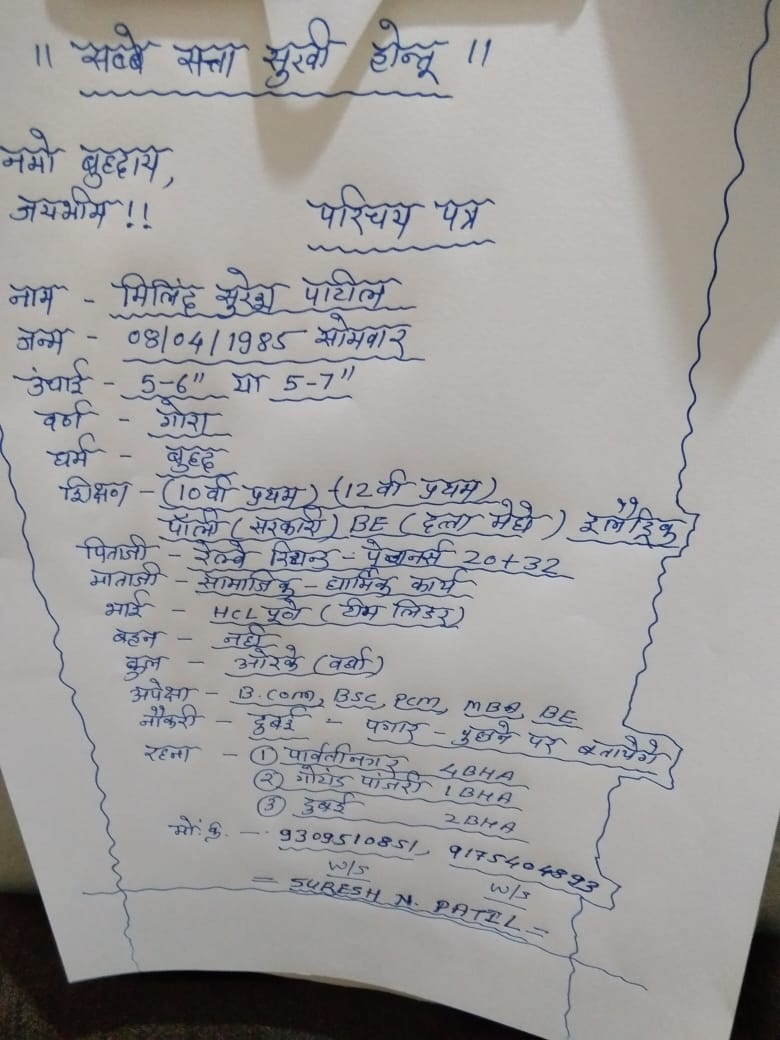 ॥ सब्बे सत्ता सुखी होन्तू ॥
नमो बुध्दाय,
जयभीम !!
परिचय पत्र
नाम - मिलिंद सुरेश पाटील
जन्म - 08/04/1985 सोमवार
उंचाई - 5-6" या 5-7"
वर्ण - गोरा
धर्म - बुध्द
शिक्षण - (10वी प्रथम) - (12वी प्रथम)
पॉली (सरकारी) BE (दत्ता मेघे) इलेक्ट्रिक
पिताजी - रेल्वे रिटायर्ड - पेंशनर्स 20+32
माताजी - सामाजिक - धार्मिक कार्य
भाई - HCL पूणे (टीम लिडर)
बहन - नही
कुल - ओरके (वर्धा)
अपेक्षा - B.com, BSC, PCM, MBA, BE
नौकरी - दुबई - पगार - पुछने पर बतायेंगे
रहना - ① पार्वतीनगर 4BHA
② गोयंड पांजरी 1BHA
③ दुबई 2BHA
मो. क्रं. - 9309510851, 9175404893
W/S W/S
= SURESH N. PATIL =